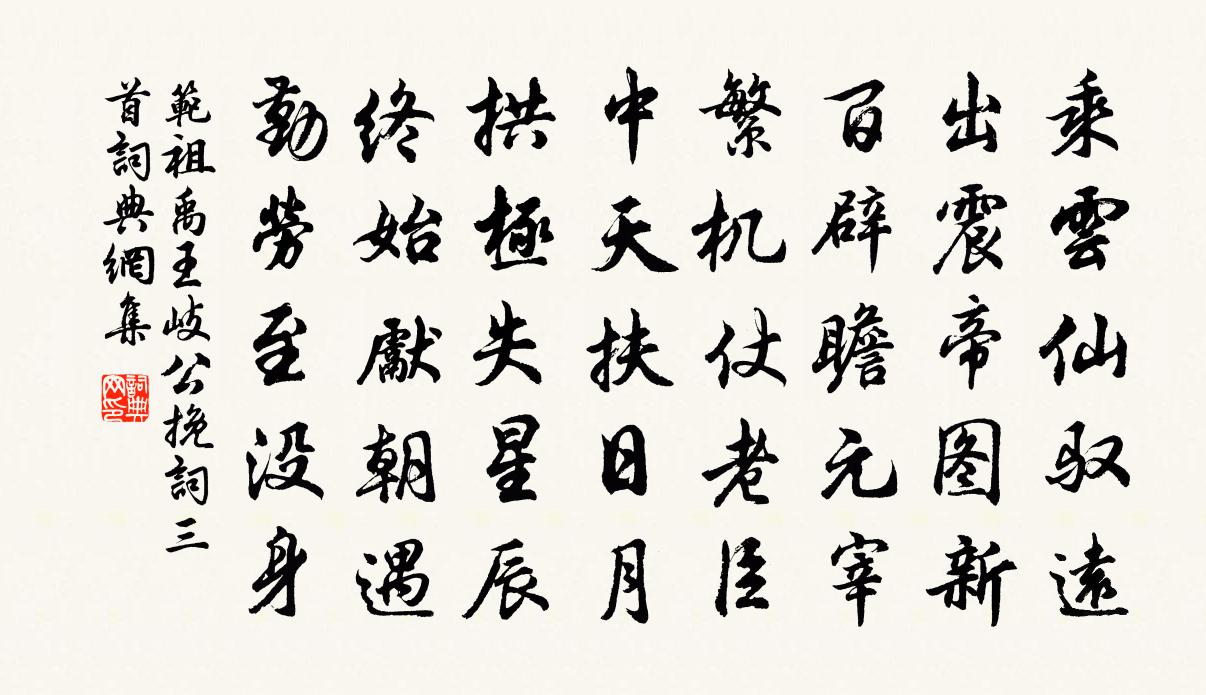 乘雲仙驭遠
出震帝图新
百辟瞻元宰
繁机仗老臣
中天扶日月
拱極失星辰
終始獻朝遇
勤勞至没身
範祖禹王岐公挽詞三
首詞典網集
詞典
网印